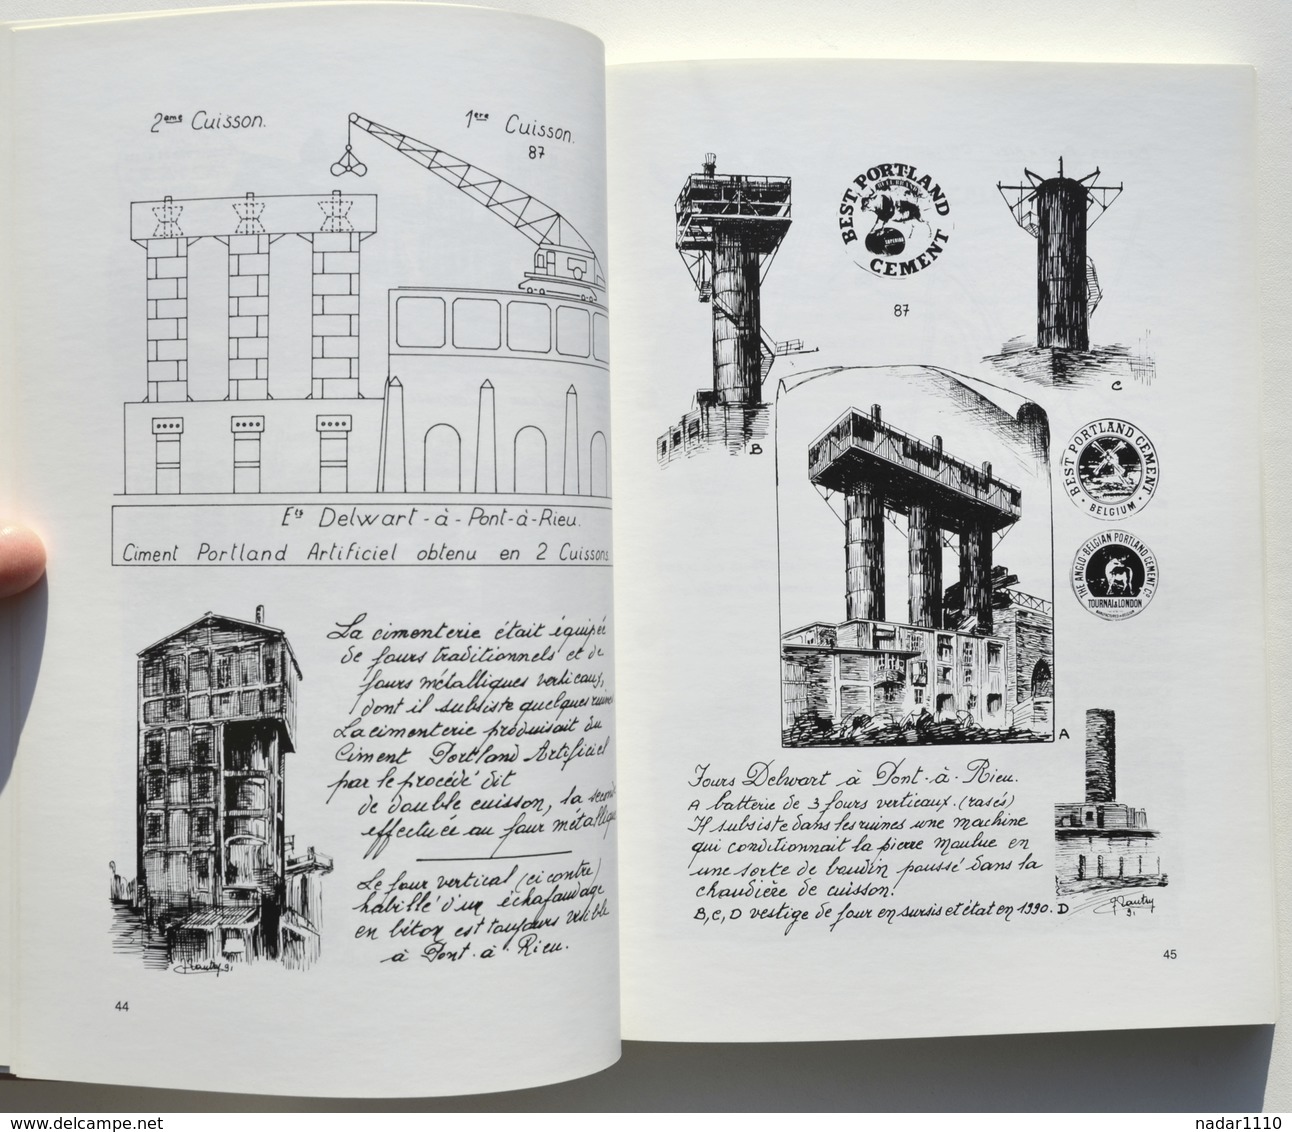 2ème Cuisson.
1ère Cuisson.
87
Ets Delwart-à-Pont-à-Rieu.
Ciment Portland Artificiel obtenu en 2 Cuissons
La cimenterie était équipée
de fours traditionnels et de
fours métalliques verticaux,
dont il subsiste quelques ruines
La cimenterie produisait du
Ciment Portland Artificiel
par le procédé dit
de double cuisson, la second
effectuée au four métallique
Le four vertical (ci contre)
habillé d'un échafaudage
en béton est toujours visible
à Pont-à-Rieu.
91
44
BEST PORTLAND
CEMENT
SUPERIOR
87
B
C
BEST PORTLAND CEMENT
BELGIUM
THE ANGLO-BELGIAN PORTLAND CEMENT Co
TOURNAI & LONDON
A
Fours Delwart à Pont-à-Rieu.
A batterie de 3 fours verticaux. (rasés)
Il subsiste dans les ruines une machine
qui conditionnait la pierre moulue en
une sorte de boudin poussé dans la
chaudière de cuisson.
B, C, D vestige de four en sursis et état en 1990. D
91
45
delcampe.net
nadar1110